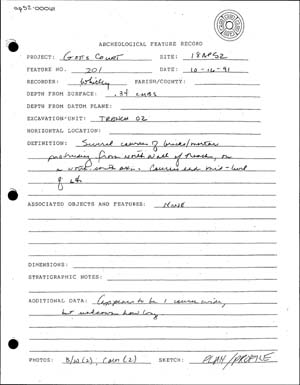 ap52-00061
ARCHEOLOGICAL FEATURE RECORD
PROJECT: Gott's Court SITE: 18AP52
FEATURE NO. 201 DATE: 10-16-91
RECORDER: Whitley PARISH/COUNTY:
DEPTH FROM SURFACE: .34
DEPTH FROM DATUM PLANE:
EXCAVATION UNIT: TRENCH 02
HORIZONTAL LOCATION:
DEFINITION: Several courses of bricks/mortar
protruding from north wall of trench, on
a north south axis. Courses end mid-level
of
ASSOCIATED OBJECTS AND FEATURES: None
DIMENSIONS:
STRATIGRAPHIC NOTES:
ADDITIONAL DATA: (appears to be 1 course wide,
but unknown how long
PHOTOS: B/W (2), Color (2) SKETCH: PLAN/PROFILE